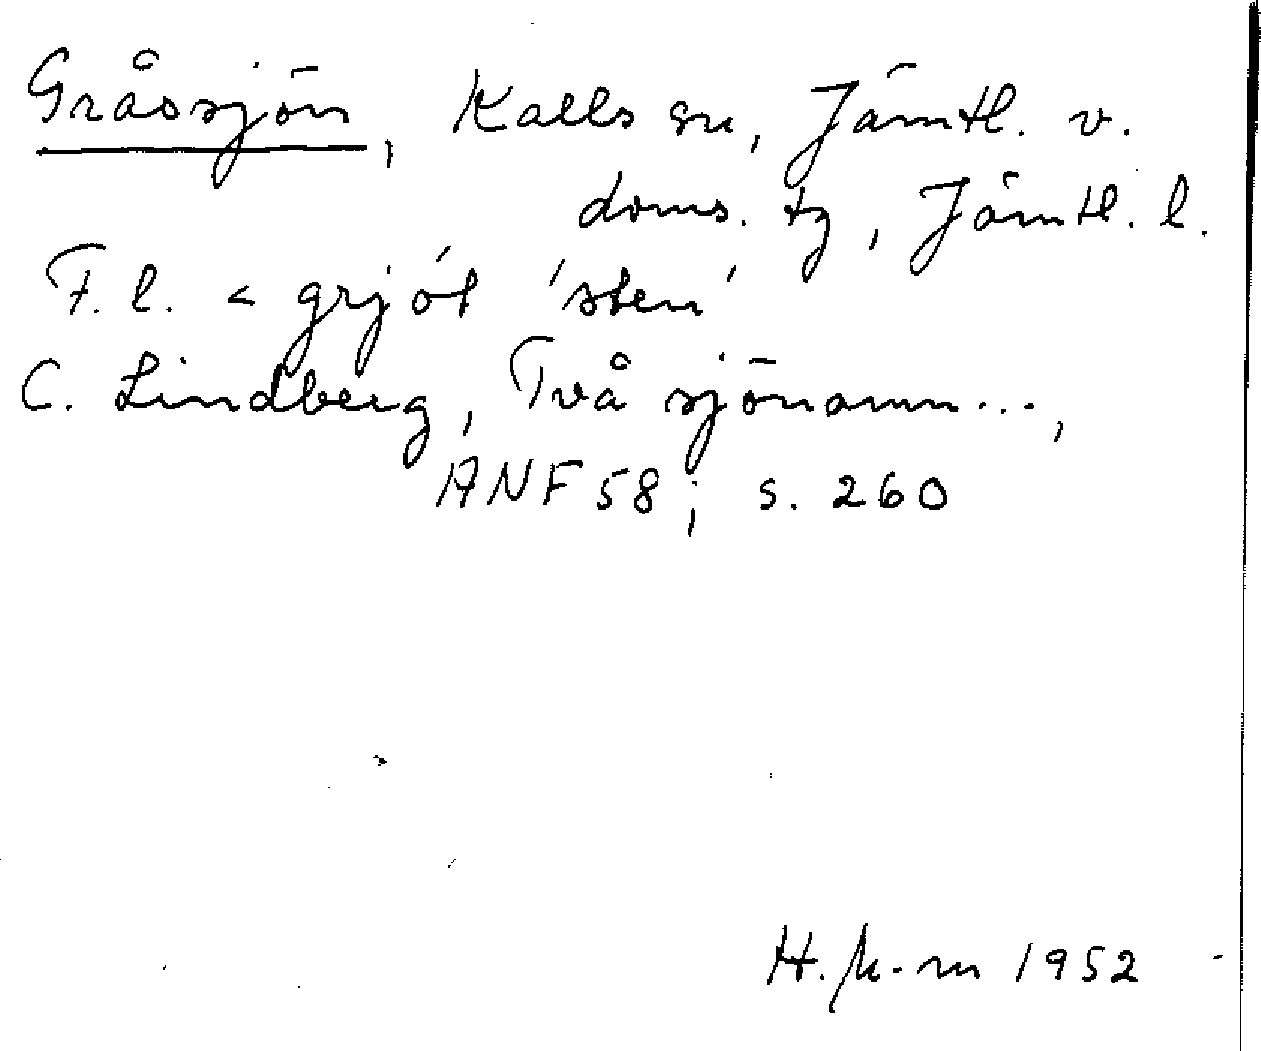 Gråssjön, Kalls sn, Jämtl. v.
doms. tg, Jämtl. l.
F. l. < grjót 'sten'
C. Lindberg, Två sjönamn...,
ANF 58; s. 260
H. K-m 1952